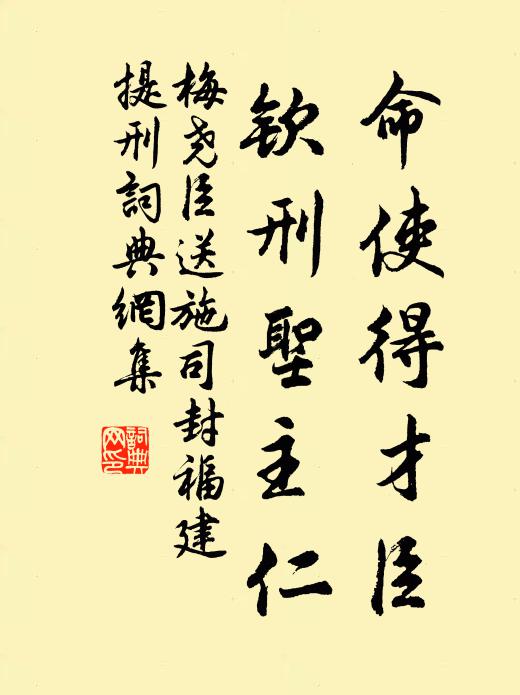 命使得才臣
欽刑聖主仁
梅尧臣送施司封福建
提刑詞典網集
詞典网印